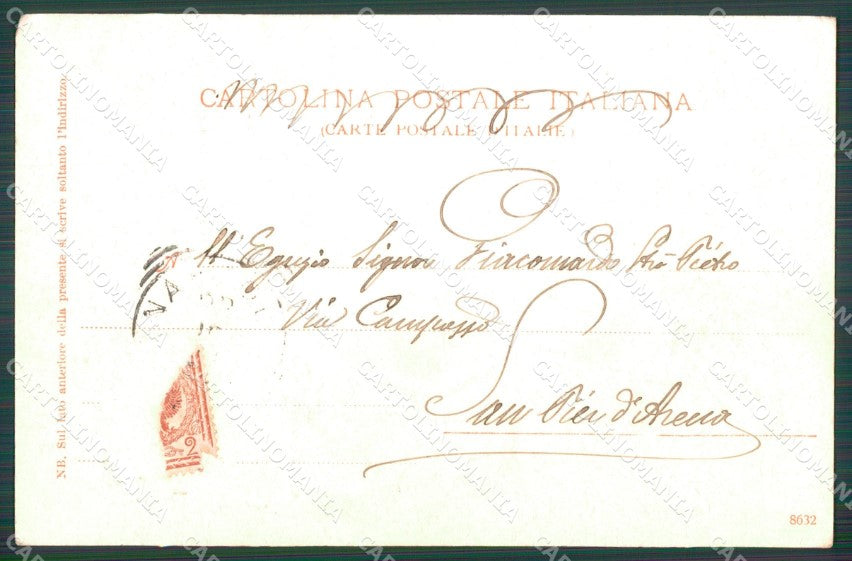 CARTOLINA POSTALE ITALIANA
(CARTE POSTALE D'ITALIE)
All Egregio Signor Giacomardo Pietro
Via Campasso
San Pier d'Arena
VA
2
8632
NB. Sul lato anteriore della presente si scrive soltanto l'indirizzo.
CARTOLINOMANIA